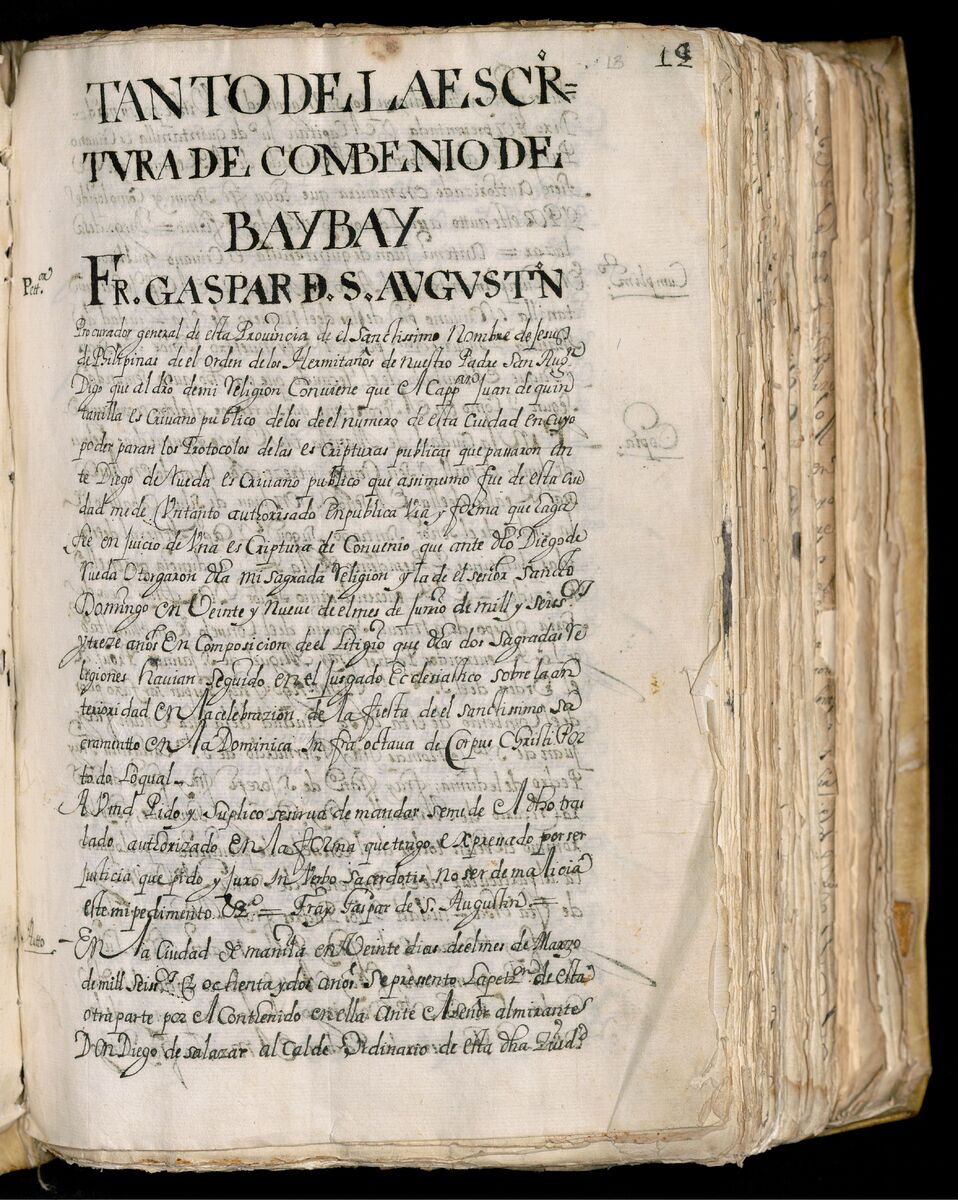 18 19
TANTO DE LA ESCR̊=
TVRA DE CONBENIO DE
BAYBAY
Pett.on FR. GASPAR D. S. AVGVSTN̊
Procurador general de esta Provincia de el Sanctissimo Nombre de Jesus
de Philipinas de el Orden de los Hermitaños de Nuestro Padre San Aug.n
Digo que al dro de mi Religion Conviene que el Capp.n Juan de quin
tanilla escrivano publico de los de el numero de esta Ciudad en cuyo
poder paran los Protocolos de las escripturas publicas que passaron an
te Diego de Rueda escrivano publico que assimesmo fue de esta Ciu
dad me de Un tanto authorisado en publica Via y forma que haga
fee en Juicio de Vna escriptura de Convenio que ante dho Diego de
Rueda Otorgaron dha mi sagrada Religion y la de el señor Sancto
Domingo en Veinte y Nueve de el mes de Junio de mill y seis.os
y treze años En Composicion de el Litigio que dhas dos Sagradas Re
ligiones havian seguido en el Jusgado Ecclesiastico sobre la an
terioridad en la celebrazion de la fiesta de el sanctissimo Sa
cramentto en la Dominica infra octava de Corpus Christi Por
todo lo qual
A Vmd Pido y Suplico se sirva de mandar se me de el dho tras
lado authorizado en la forma que tengo expresado por ser
justicia que pido y juro In Verbo Sacerdotis no ser de malicia
este mi pedimento &.a = Fray Gaspar de S. Augustin =
Autto En la Ciudad de manila en Veinte dias de el mes de Marzo
de mill seis.os y ochenta y dos años Se presento la pett.on de esta
otra parte por el Contenido en ella ante el señor almirante
Don Diego de salazar alcalde Ordinario de esta dha Ciud.d